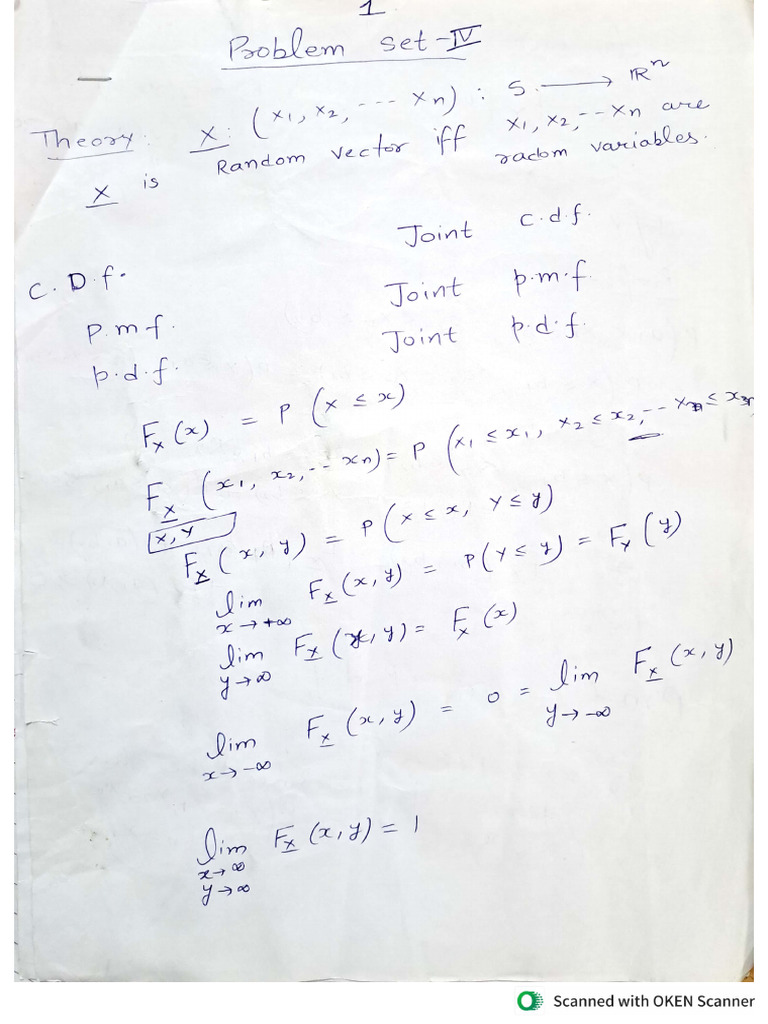 1
Problem set-IV
Theory: X: (x1, x2, --- xn) : S → ℝⁿ
X is Random vector iff x1, x2, --xn are radom variables.
C.D.f. Joint c.d.f.
p.m.f. Joint p.m.f.
p.d.f. Joint p.d.f.
Fx(x) = P (X ≤ x)
Fx (x1, x2, -- xn) = P (x1 ≤ x1, x2 ≤ x2, --- xn ≤ xn
x, y
Fx(x, y) = P(X ≤ x, Y ≤ y)
lim x→+∞ Fx(x, y) = P(Y ≤ y) = Fy(y)
lim y→∞ Fx(x, y) = Fx(x)
lim x→-∞ Fx(x, y) = 0 = lim y→-∞ Fx(x, y)
lim x→∞ y→∞ Fx(x, y) = 1
Scanned with OKEN Scanner